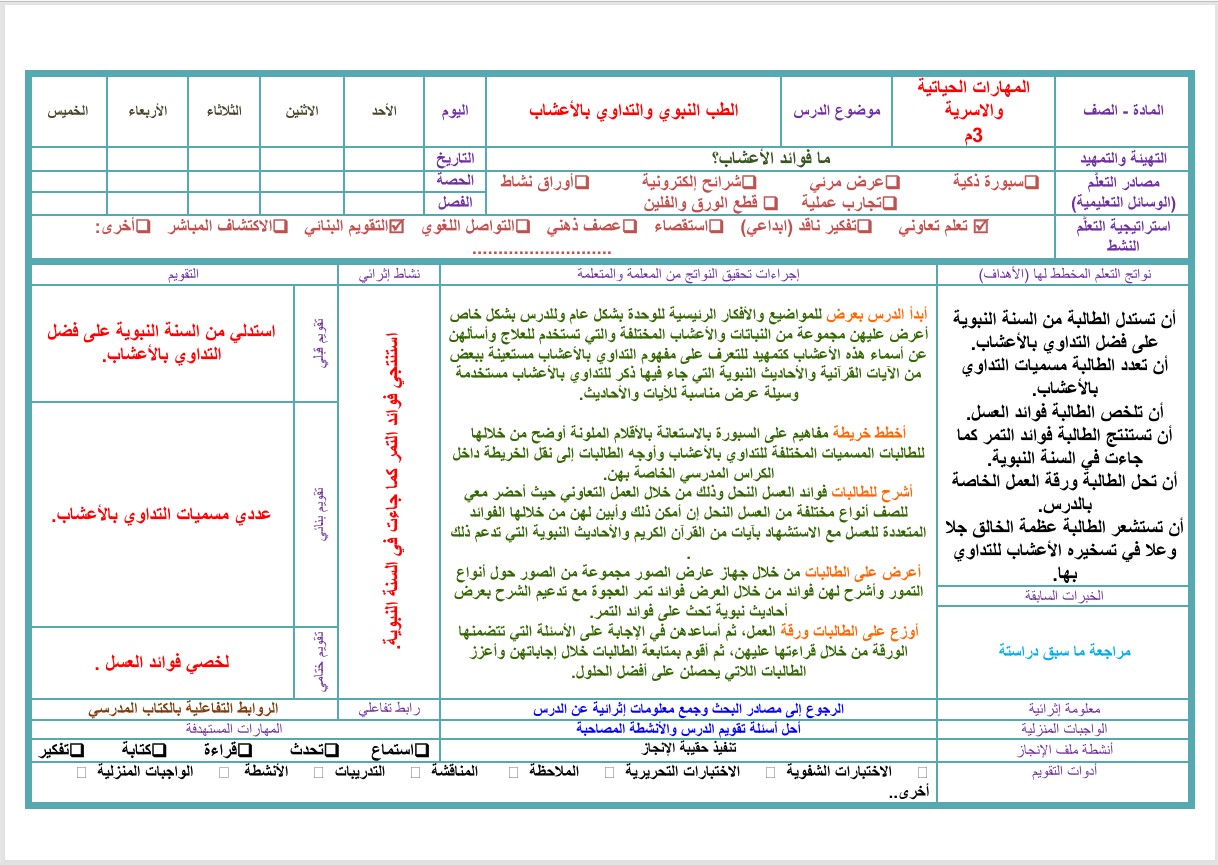 المادة - الصف
المهارات الحياتية
والاسرية
3م
موضوع الدرس
الطب النبوي والتداوي بالأعشاب
اليوم
الأحد
الاثنين
الثلاثاء
الأربعاء
الخميس
التهيئة والتمهيد
ما فوائد الأعشاب؟
التاريخ
مصادر التعلّم
(الوسائل التعليمية)
❑سبورة ذكية ❑عرض مرئي ❑شرائح إلكترونية ❑أوراق نشاط
❑تجارب عملية ❑ قطع الورق والفلين
الحصة
الفصل
استراتيجية التعلّم
النشط
☑ تعلم تعاوني ❑تفكير ناقد (ابداعي) ❑استقصاء ❑عصف ذهني ❑التواصل اللغوي ☑التقويم البنائي ❑الاكتشاف المباشر ❑أخرى:
...........................
نواتج التعلم المخطط لها (الأهداف)
إجراءات تحقيق النواتج من المعلمة والمتعلمة
نشاط إثرائي
التقويم
أن تستدل الطالبة من السنة النبوية
على فضل التداوي بالأعشاب.
أن تعدد الطالبة مسميات التداوي
بالأعشاب.
أن تلخص الطالبة فوائد العسل.
أن تستنتج الطالبة فوائد التمر كما
جاءت في السنة النبوية.
أن تحل الطالبة ورقة العمل الخاصة
بالدرس.
أن تستشعر الطالبة عظمة الخالق جلا
وعلا في تسخيره الأعشاب للتداوي
بها.
الخبرات السابقة
مراجعة ما سبق دراستة
أبدأ الدرس بعرض للمواضيع والأفكار الرئيسية للوحدة بشكل عام وللدرس بشكل خاص
أعرض عليهن مجموعة من النباتات والأعشاب المختلفة والتي تستخدم للعلاج وأسألهن
عن أسماء هذه الأعشاب كتمهيد للتعرف على مفهوم التداوي بالأعشاب مستعينة ببعض
من الآيات القرآنية والأحاديث النبوية التي جاء فيها ذكر للتداوي بالأعشاب مستخدمة
وسيلة عرض مناسبة للآيات والأحاديث.
أخطط خريطة مفاهيم على السبورة بالاستعانة بالأقلام الملونة أوضح من خلالها
للطالبات المسميات المختلفة للتداوي بالأعشاب وأوجه الطالبات إلى نقل الخريطة داخل
الكراس المدرسي الخاصة بهن.
أشرح للطالبات فوائد العسل النحل وذلك من خلال العمل التعاوني حيث أحضر معي
للصف أنواع مختلفة من العسل النحل إن أمكن ذلك وأبين لهن من خلالها الفوائد
المتعددة للعسل مع الاستشهاد بآيات من القرآن الكريم والأحاديث النبوية التي تدعم ذلك
.
أعرض على الطالبات من خلال جهاز عارض الصور مجموعة من الصور حول أنواع
التمور وأشرح لهن فوائد من خلال العرض فوائد تمر العجوة مع تدعيم الشرح بعرض
أحاديث نبوية تحث على فوائد التمر.
أوزع على الطالبات ورقة العمل، ثم أساعدهن في الإجابة على الأسئلة التي تتضمنها
الورقة من خلال قراءتها عليهن، ثم أقوم بمتابعة الطالبات خلال إجاباتهن وأعزز
الطالبات اللاتي يحصلن على أفضل الحلول.
استنتجي فوائد التمر كما جاءت في السنة النبوية.
تقويم قبلي
استدلي من السنة النبوية على فضل
التداوي بالأعشاب.
تقويم بنائي
عددي مسميات التداوي بالأعشاب.
تقويم ختامي
لخصي فوائد العسل .
معلومة إثرائية
الرجوع إلى مصادر البحث وجمع معلومات إثرائية عن الدرس
رابط تفاعلي
الروابط التفاعلية بالكتاب المدرسي
الواجبات المنزلية
أحل أسئلة تقويم الدرس والأنشطة المصاحبة
المهارات المستهدفة
أنشطة ملف الإنجاز
تنفيذ حقيبة الإنجاز
❑استماع ❑تحدث ❑قراءة ❑كتابة ❑تفكير
أدوات التقويم
□ الاختبارات الشفوية □ الاختبارات التحريرية □ الملاحظة □ المناقشة □ التدريبات □ الأنشطة □ الواجبات المنزلية □
أخرى..